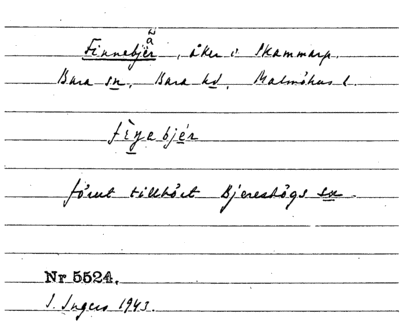 Finnebjär, åker i Skammarp.
Bara sn, Bara hd, Malmöhus l.
fìnebjér
förut tillhört Bjereshögs sn.
Nr 5524.
I. Ingers 1943.